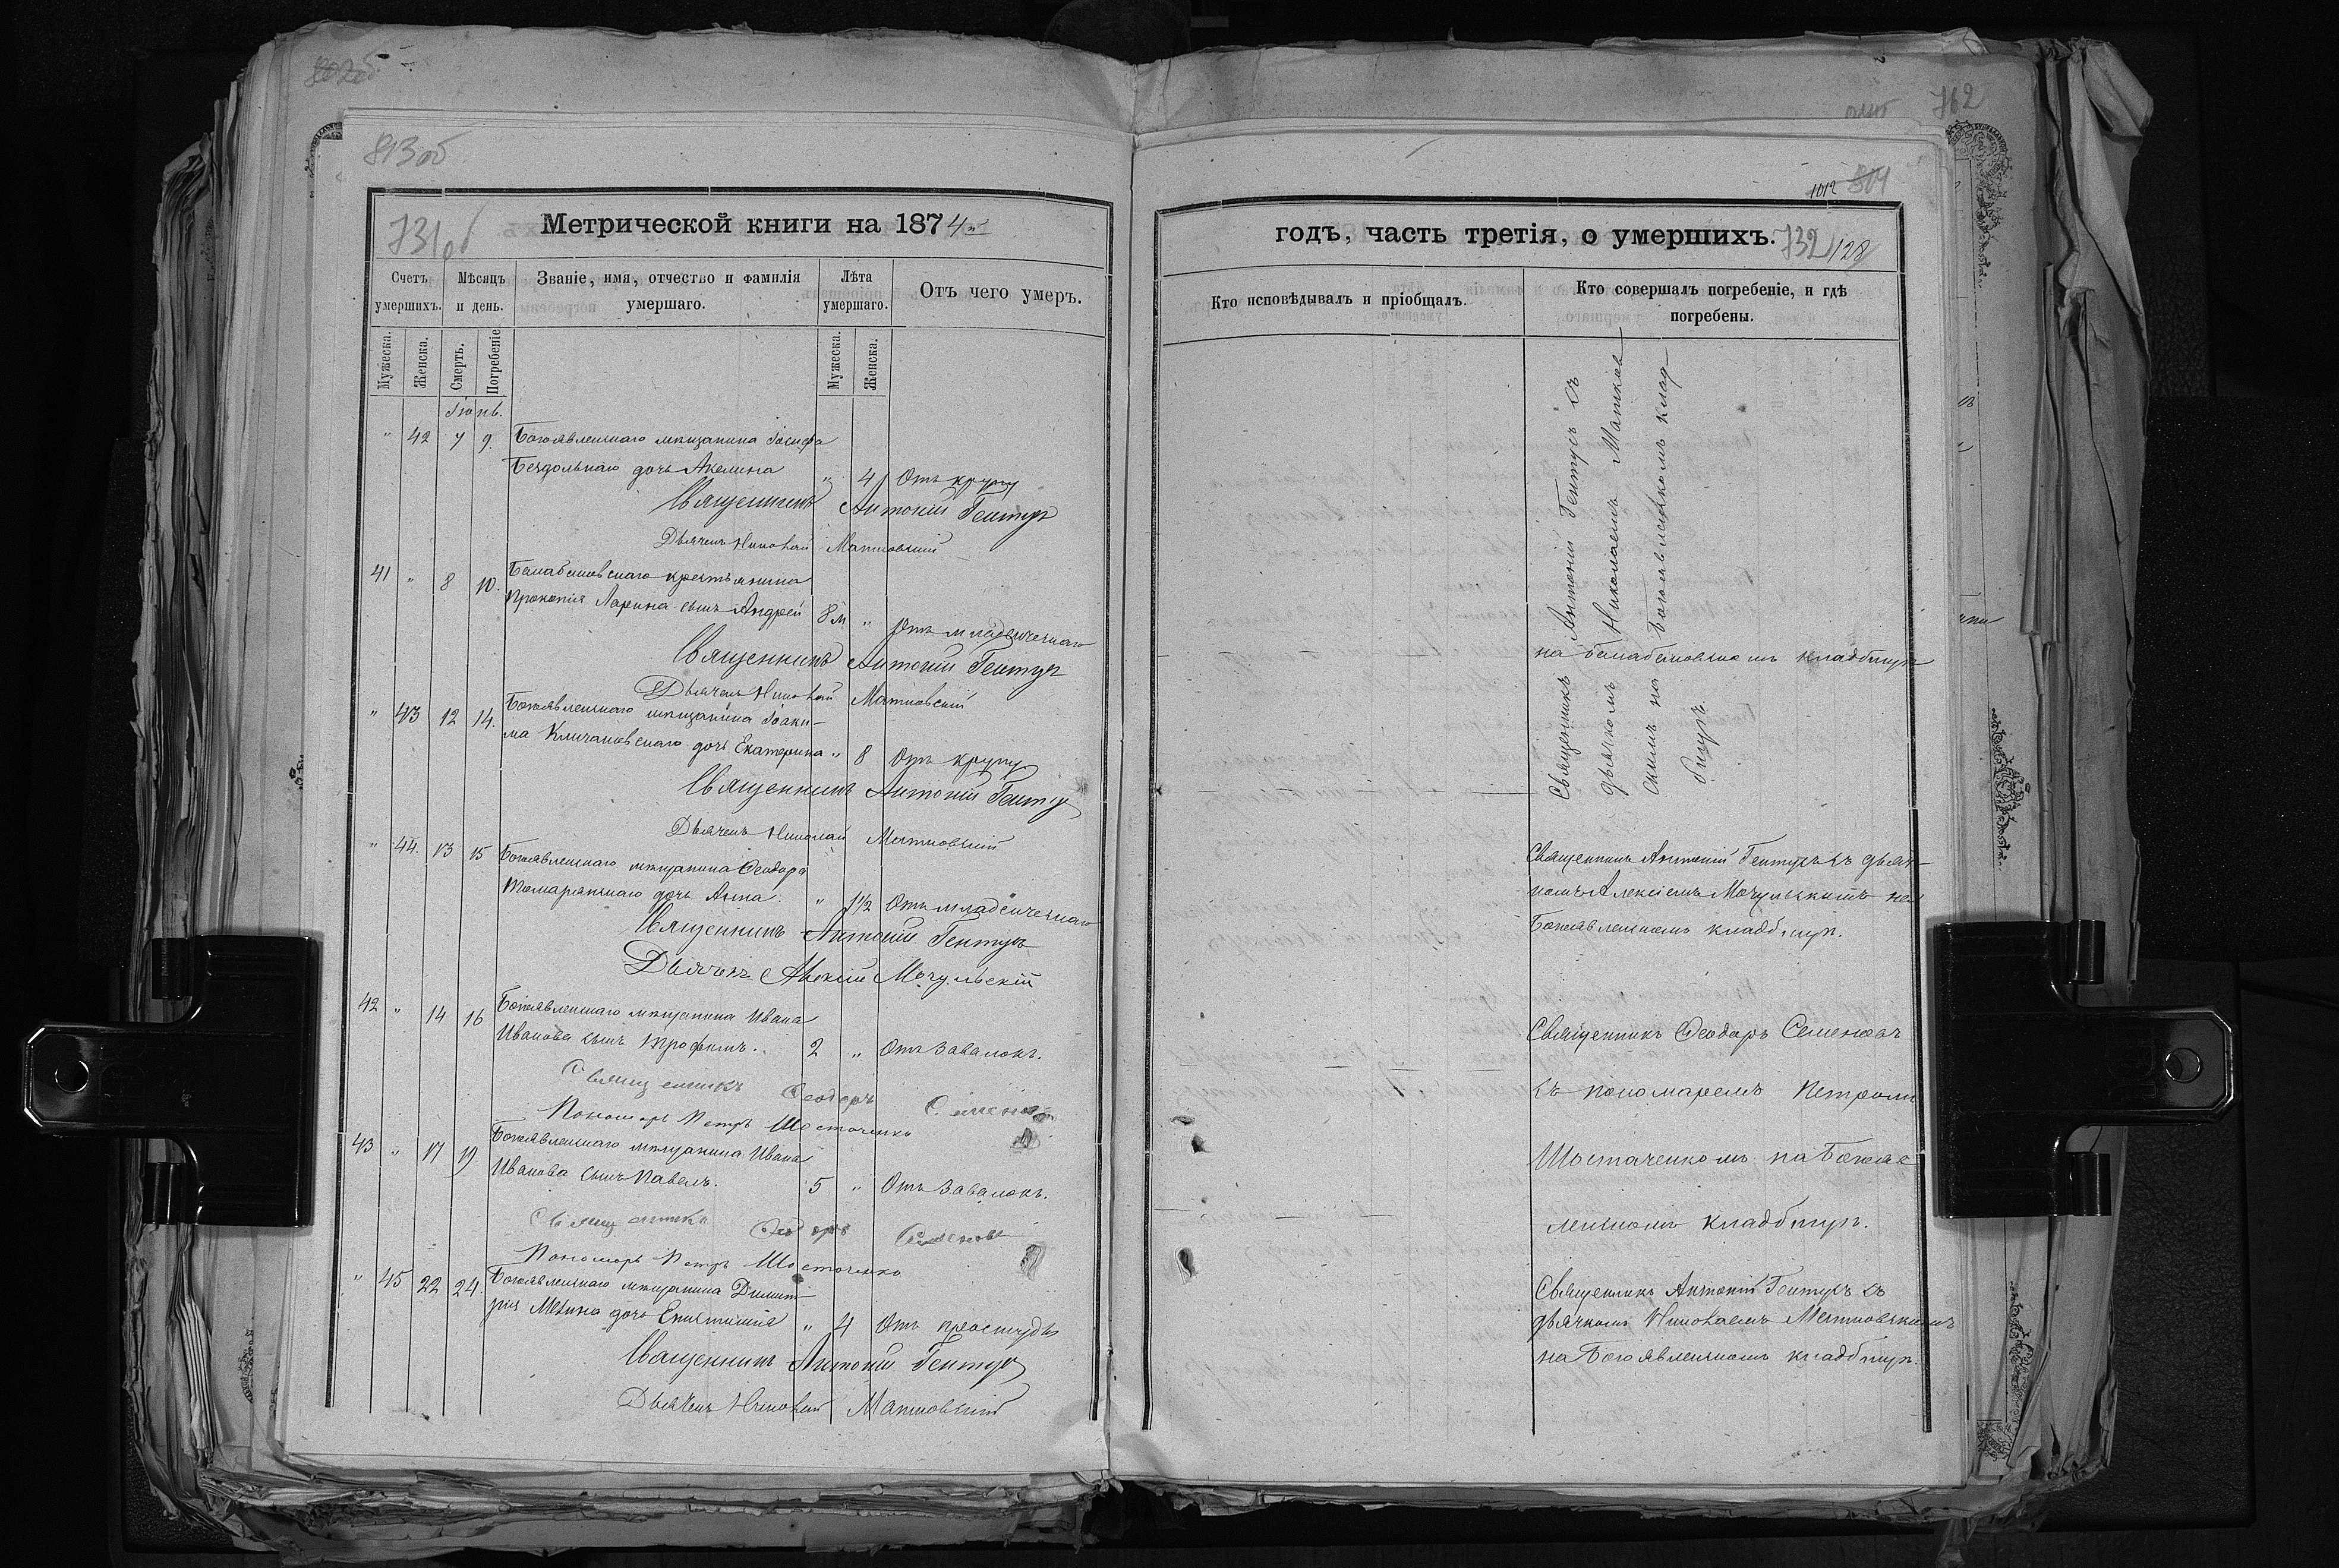 813 об
Метрической книги на 1874й
731 об
Счетъ умершихъ.
Мѣсяцъ и день.
Званіе, имя, отчество и фамилія умершаго.
Лѣта умершаго.
Отъ чего умеръ.
Мужеска. Женска. Смерть. Погребеніе Мужеска. Женска.
" 42 7 9. Богоявленскаго мѣщанина Іосифа
Бездольнаго дочь Акелина " 4 Отъ крупу
Священникъ Антоній Гентукъ
Дьячекъ Николай Матковскій
41 " 8 10. Балабановскаго крестьянина
Прокопія Ларина сынъ Андрей 8м " Отъ младенческаго
Священникъ Антоній Гентукъ
Дьячекъ Николай Матковскій
" 43 12 14. Богоявленскаго мѣщанина Іоаки-
ма Кличановскаго дочь Екатерина " 8 Отъ крупу
Священникъ Антоній Гентукъ
Дьячекъ Николай Матковскій
" 44. 13 15 Богоявленскаго мѣщанина Ѳеодора
дочь Анна. " 1 1/2 Отъ младенческаго
Священникъ Антоній Гентукъ
Дьячекъ Алексій Мочульскій
42 " 14 16 Богоявленскаго мѣщанина Ивана
Иванова сынъ Трофимъ. 2 " Отъ завалокъ.
Священникъ Ѳеодоръ
Пономарь Петръ Шостаченко
43 " 17 19 Богоявленскаго мѣщанина Ивана
Иванова сынъ Павелъ. 5 " Отъ завалокъ.
Священникъ Ѳеодоръ
Пономарь Петръ Шостаченко
" 45 22 24. Богоявленскаго мѣщанина Димит-
рія дочь " 4 Отъ простуды
Священникъ Антоній Гентукъ
Дьячекъ Николай Матковскій
762
1012 804
годъ, часть третія, о умершихъ.
732
128
Кто исповѣдывалъ и пріобщалъ.
Кто совершалъ погребеніе, и гдѣ погребены.
Священникъ Антоній Гентукъ съ
дьячкомъ Николаемъ Матков
скимъ на Богоявленскомъ клад
бищѣ.
на Балабановскомъ кладбищѣ
Священникъ Антоній Гентукъ съ дьяч-
комъ Алексіемъ Мочульскимъ на
Богоявленскомъ кладбищѣ.
Священникъ Ѳеодоръ
съ пономаремъ Петромъ
Шостаченкомъ на Богояв
ленскомъ кладбищѣ.
Священникъ Антоній Гентукъ съ
дьячкомъ Николаемъ Матковскимъ
на Богоявленскомъ кладбищѣ.